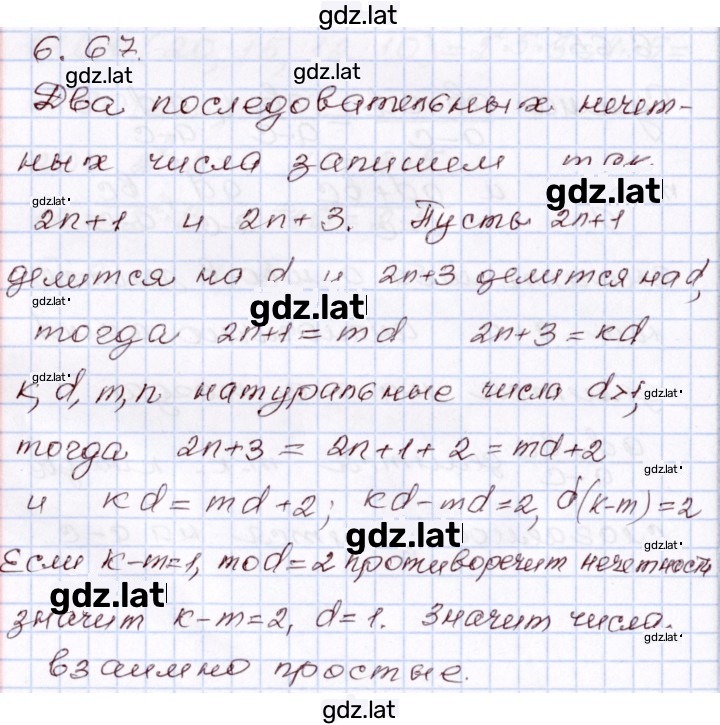 gdz.lat
6.67.
gdz.lat gdz.lat
Два последовательных нечет-
ных числа запишем так
gdz.lat gdz.lat
2n+1 и 2n+3. Пусть 2n+1
делится на d и 2n+3 делится на d,
gdz.lat gdz.lat gdz.lat
тогда 2n+1 = md 2n+3 = kd
gdz.lat gdz.lat
k, d, m, n натуральные числа d>1,
тогда 2n+3 = 2n+1+2 = md+2
gdz.lat gdz.lat
и kd = md+2; kd-md=2, d(k-m)=2
gdz.lat gdz.lat
Если k-m=1, то d=2 противоречит нечетности
gdz.lat
значит k-m=2, d=1. Значит числа
gdz.lat
взаимно простые.
gdz.lat